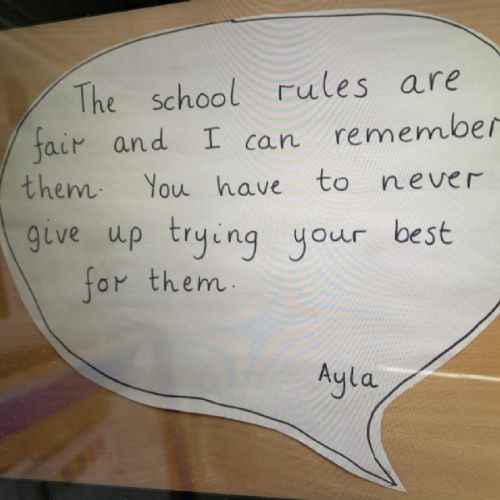 The school rules are
fair and I can remember
them. You have to never
give up trying your best
for them.
Ayla